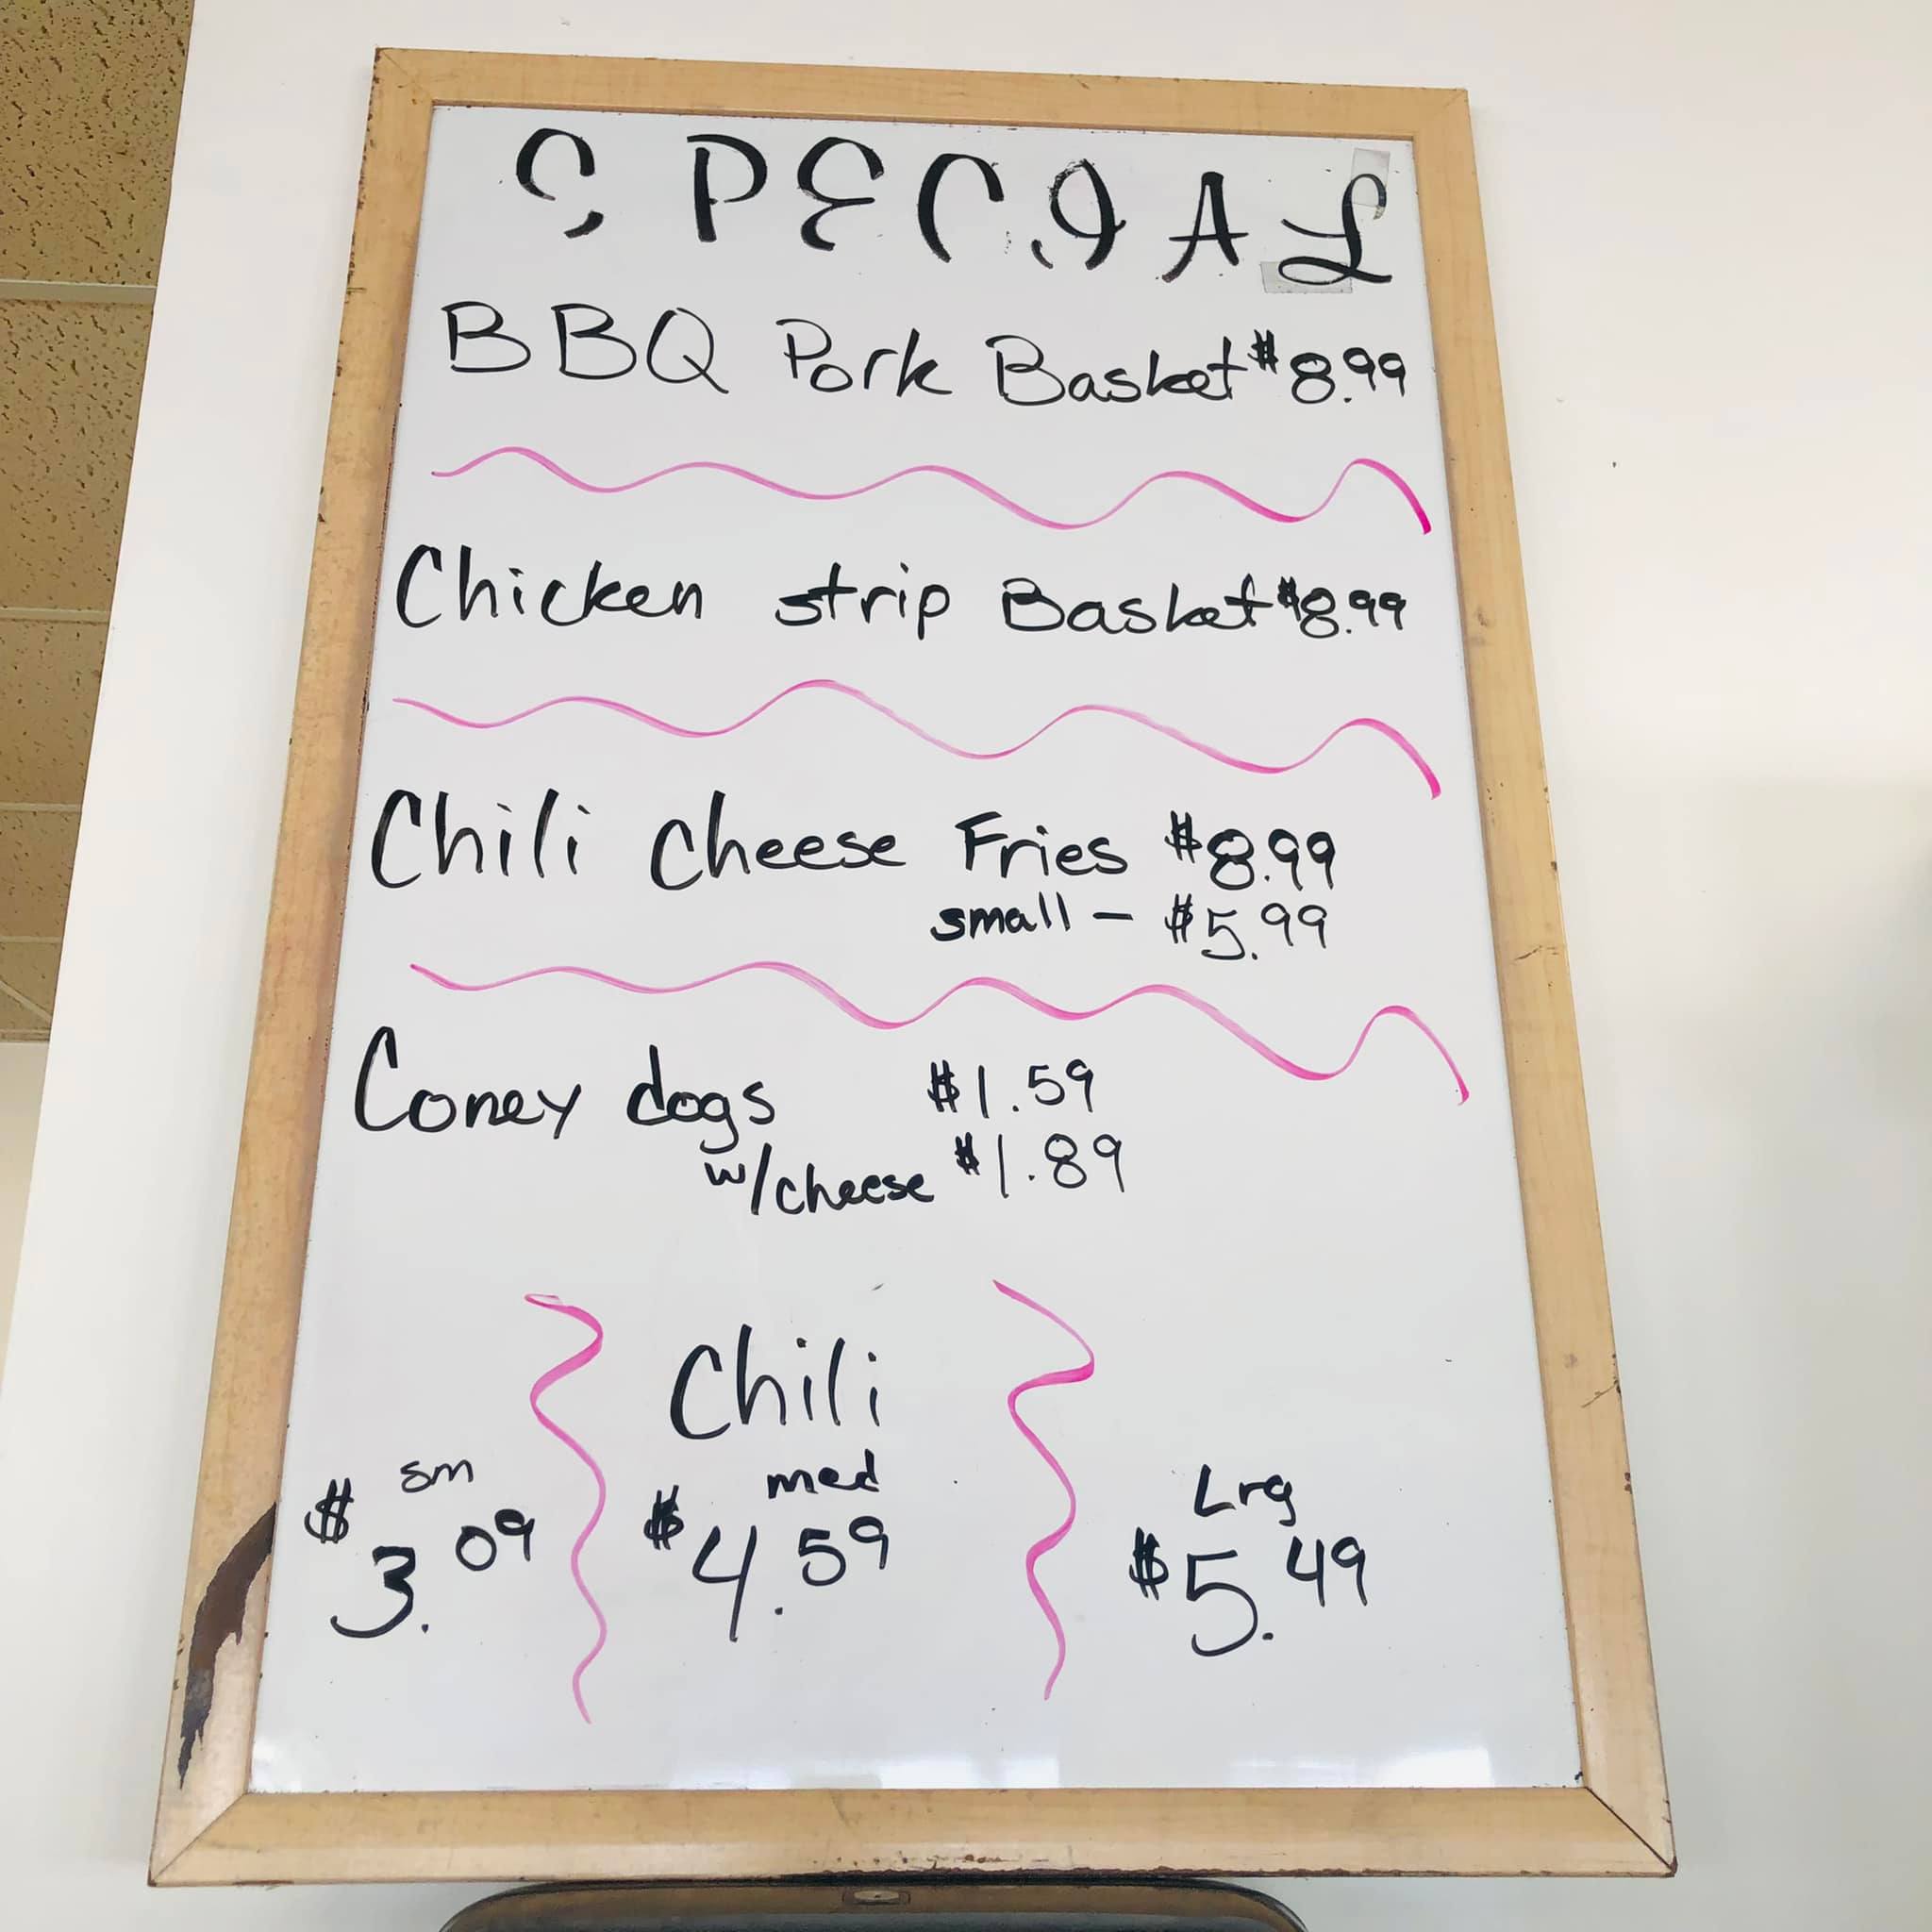 SPECIAL
BBQ Pork Basket $8.99
Chicken strip Basket $8.99
Chili Cheese Fries $8.99
small - $5.99
Coney dogs $1.59
w/cheese $1.89
Chili
sm med Lrg
$3.09 $4.59 $5.49